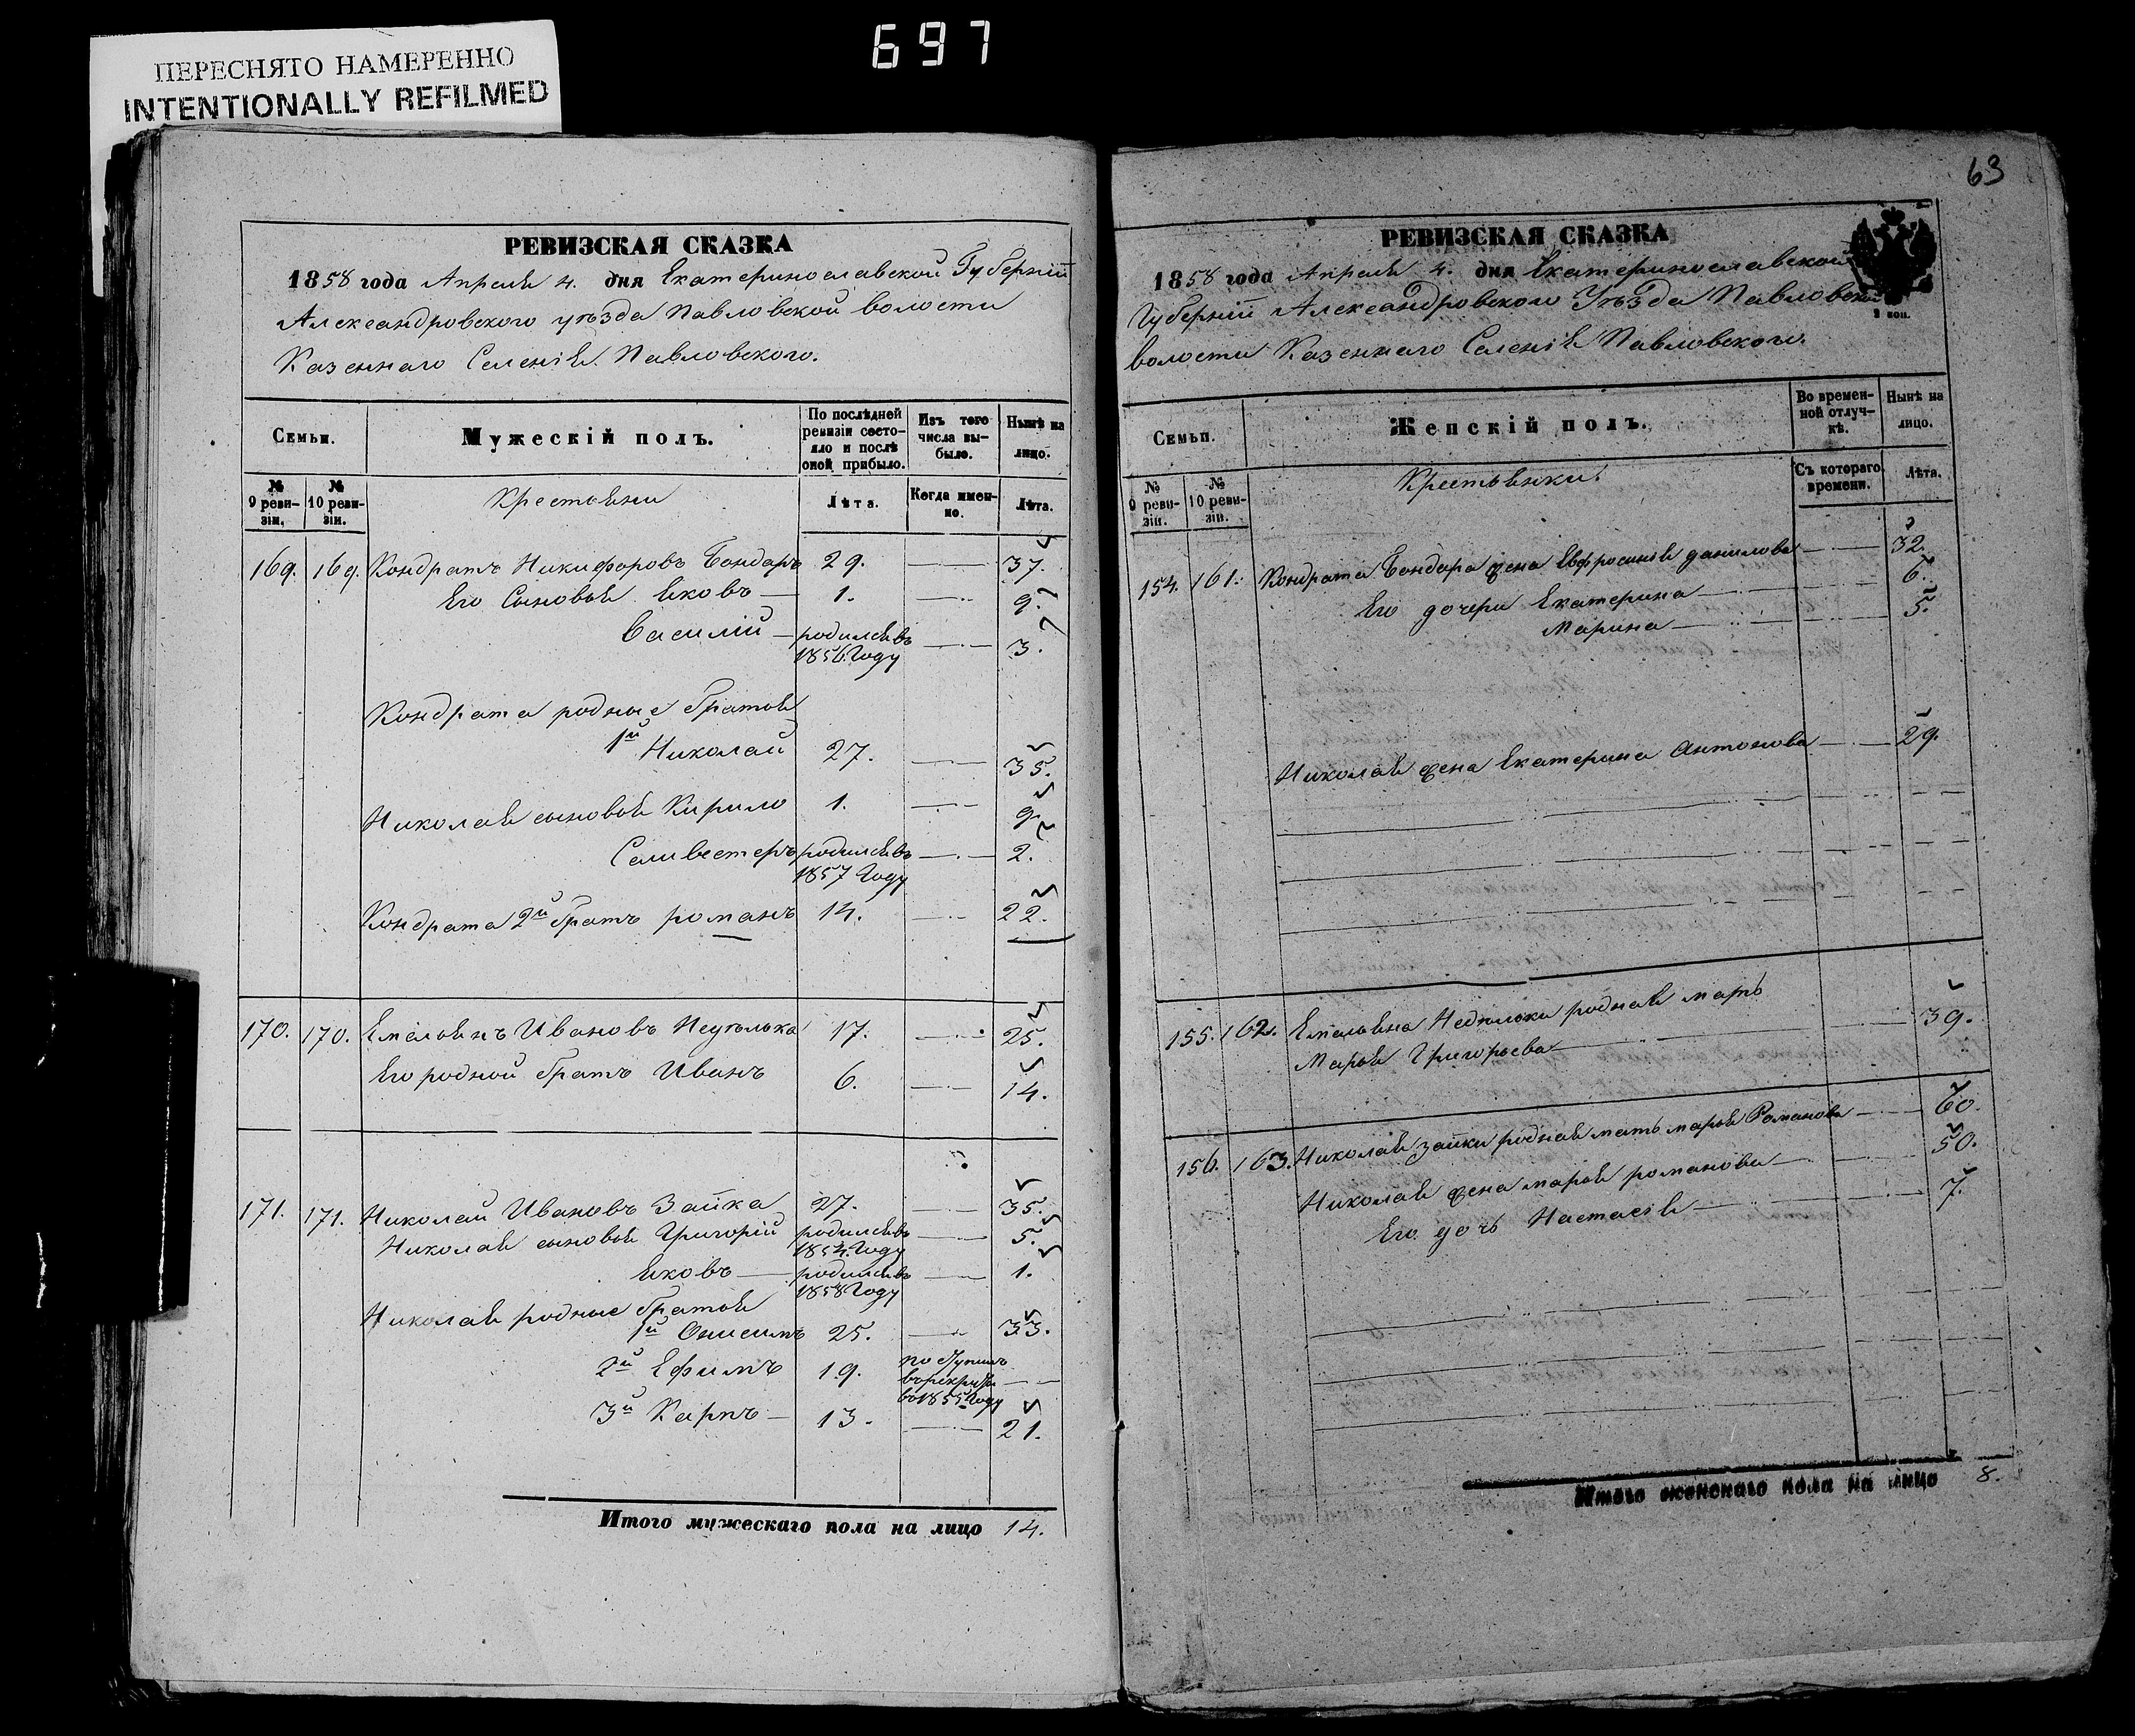 697
ПЕРЕСНЯТО НАМЕРЕННО
INTENTIONALLY REFILMED
РЕВИЗСКАЯ СКАЗКА
1858 года Апреля 4. дня Екатеринославской Губерніи
Александровского уѣзда Павловской волости
Казеннаго Селенія Павловского.
Семьи.
Мужескій полъ.
По послѣдней ревизіи состояло и послѣ оной прибыло.
Изъ того числа выбыло.
Нынѣ на лицо.
№ 9 ревизіи.
№ 10 ревизіи.
Крестьяни
Лѣта.
Когда именно.
Лѣта.
169. 169. Кондратъ Никифоровъ Бондарь 29. 37.
Его Сыновья Яковъ 1. 9.
Василій родился въ 1856 Году 3.
Кондрата родные братья
1й Николай 27. 35.
Николая сыновья Кирило 1. 9.
Селивестеръ родился въ 1857 Году 2.
Кондрата 2й братъ романъ 14. 22.
170. 170. Емельянъ Ивановъ 17. 25.
Его родной братъ Иванъ 6. 14.
171. 171. Николай Ивановъ Заика 27. 35.
Николая сыновья Григорій родился въ 1854 Году 5.
Яковъ родился въ 1858 Году 1.
Николая родные братья
1й Онисимъ 25. 33.
2й Ефимъ 19. поступилъ в рекруты в 1855 Году
3й Карпъ 13. 21.
Итого мужескаго пола на лицо 14.
63
РЕВИЗСКАЯ СКАЗКА
1858 года Апреля 4. дня Екатеринославской
Губерніи Александровского Уѣзда Павловской
волости Казеннаго Селенія Павловского.
Семьи.
Женскій полъ.
Во временной отлучкѣ.
Нынѣ на лицо.
№ 9 ревизіи.
№ 10 ревизіи.
Крестьянки.
Съ котораго времени.
Лѣта.
154. 161. Кондрата Бондаря жена Евфросинія данилова 32.
Его дочери Екатерина 6.
Марина 5.
Николая жена Екатерина Антонова 29.
155. 162. Емельяна родная мать
Марья Григорьева 39.
156. 163. Николая заики родная мать марья Романова 60.
Николая жена марья романова 30.
Его дочь Настасія 7.
Итого женскаго пола на лицо 8.